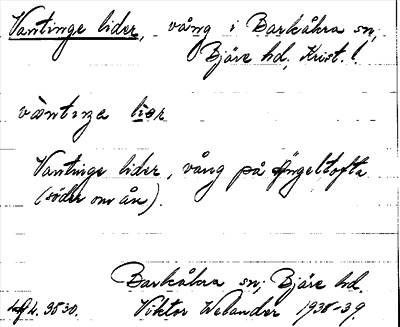 Vantinge lider, vång i Barkåkra sn,
Bjäre hd, Krist. l.
väntinga liər
Vantinge lider, vång på Ängeltofta
(söder om ån).
Barkåkra sn; Bjäre hd.
Viktor Welander 1938-39.